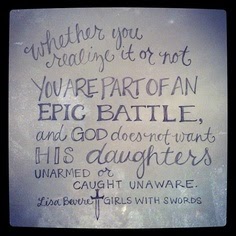 Whether you
realize it or not
YOU ARE PART OF AN
EPIC BATTLE,
and GOD does not want
HIS daughters
UNARMED OR
CAUGHT UNAWARE.
Lisa Bevere GIRLS WITH SWORDS